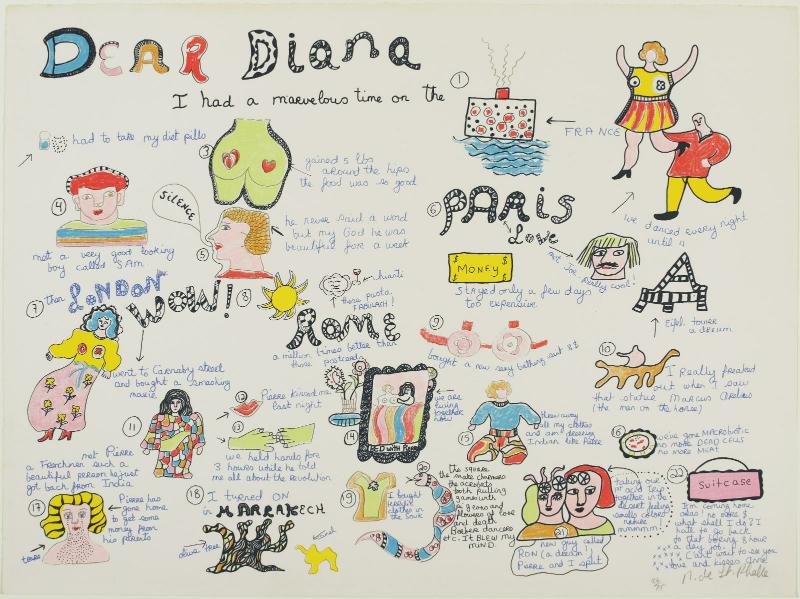 DEAR Diana
I had a marvelous time on the
1
FRANCE
had to take my diet pills
3
gained 5 lbs
around the hips
the food was so good
4
not a very good looking
boy called SAM
SILENCE
5
he never said a word
but my God he was
beautiful for a week
I've danced every night
until 4
6
PARIS
Love
not Joe really cool!
MONEY
Stayed only a few days
too expensive
Eiffel tower
a dream
7
then LONDON
WOW!
went to Carnaby street
and bought a smashing
maxie
8
chianti
those pasta
FABULOUS!
ROME
a million times better than
those postcards
9
bought a new sexy bathing suit 8$
10
I Really freaked
out when I saw
that statue MARCUS
(the man on the horse)
11
met Pierre
a Frenchman such a
beautiful person he just
got back from India
12
Pierre kissed me
last night
13
we held hands for
3 hours while he told
me all about the revolution
14
BED WITH PIERRE
we are
living
together
now
15
threw away
all my clothes
and am dressing
Indian like Pierre
16
we've gone MACROBIOTIC
no more DEAD CELLS
no more MEAT
17
Pierre has
gone home
to get some
money from
his parents
tears
18
I turned ON
in MARRAKECH
olive tree
camel
19
I bought
clothes
in the souk
20
the square
the snake charmers
the acrobats
both pulling
and flowers of love
and death
Berber dancers
etc. It BLEW my
MIND.
taking our
acid trip
together in the
desert feeling
smells colors
nature
mmmmm!
21
new guy called
RON (a dream!)
Pierre and I split
22
Suitcase
I'm coming home
also no more $
what shall I do? I
hate to go back
to that boring 8 hour
a day job.
xxx Can't wait to see you
love and kisses
N. de St. Phalle
/75